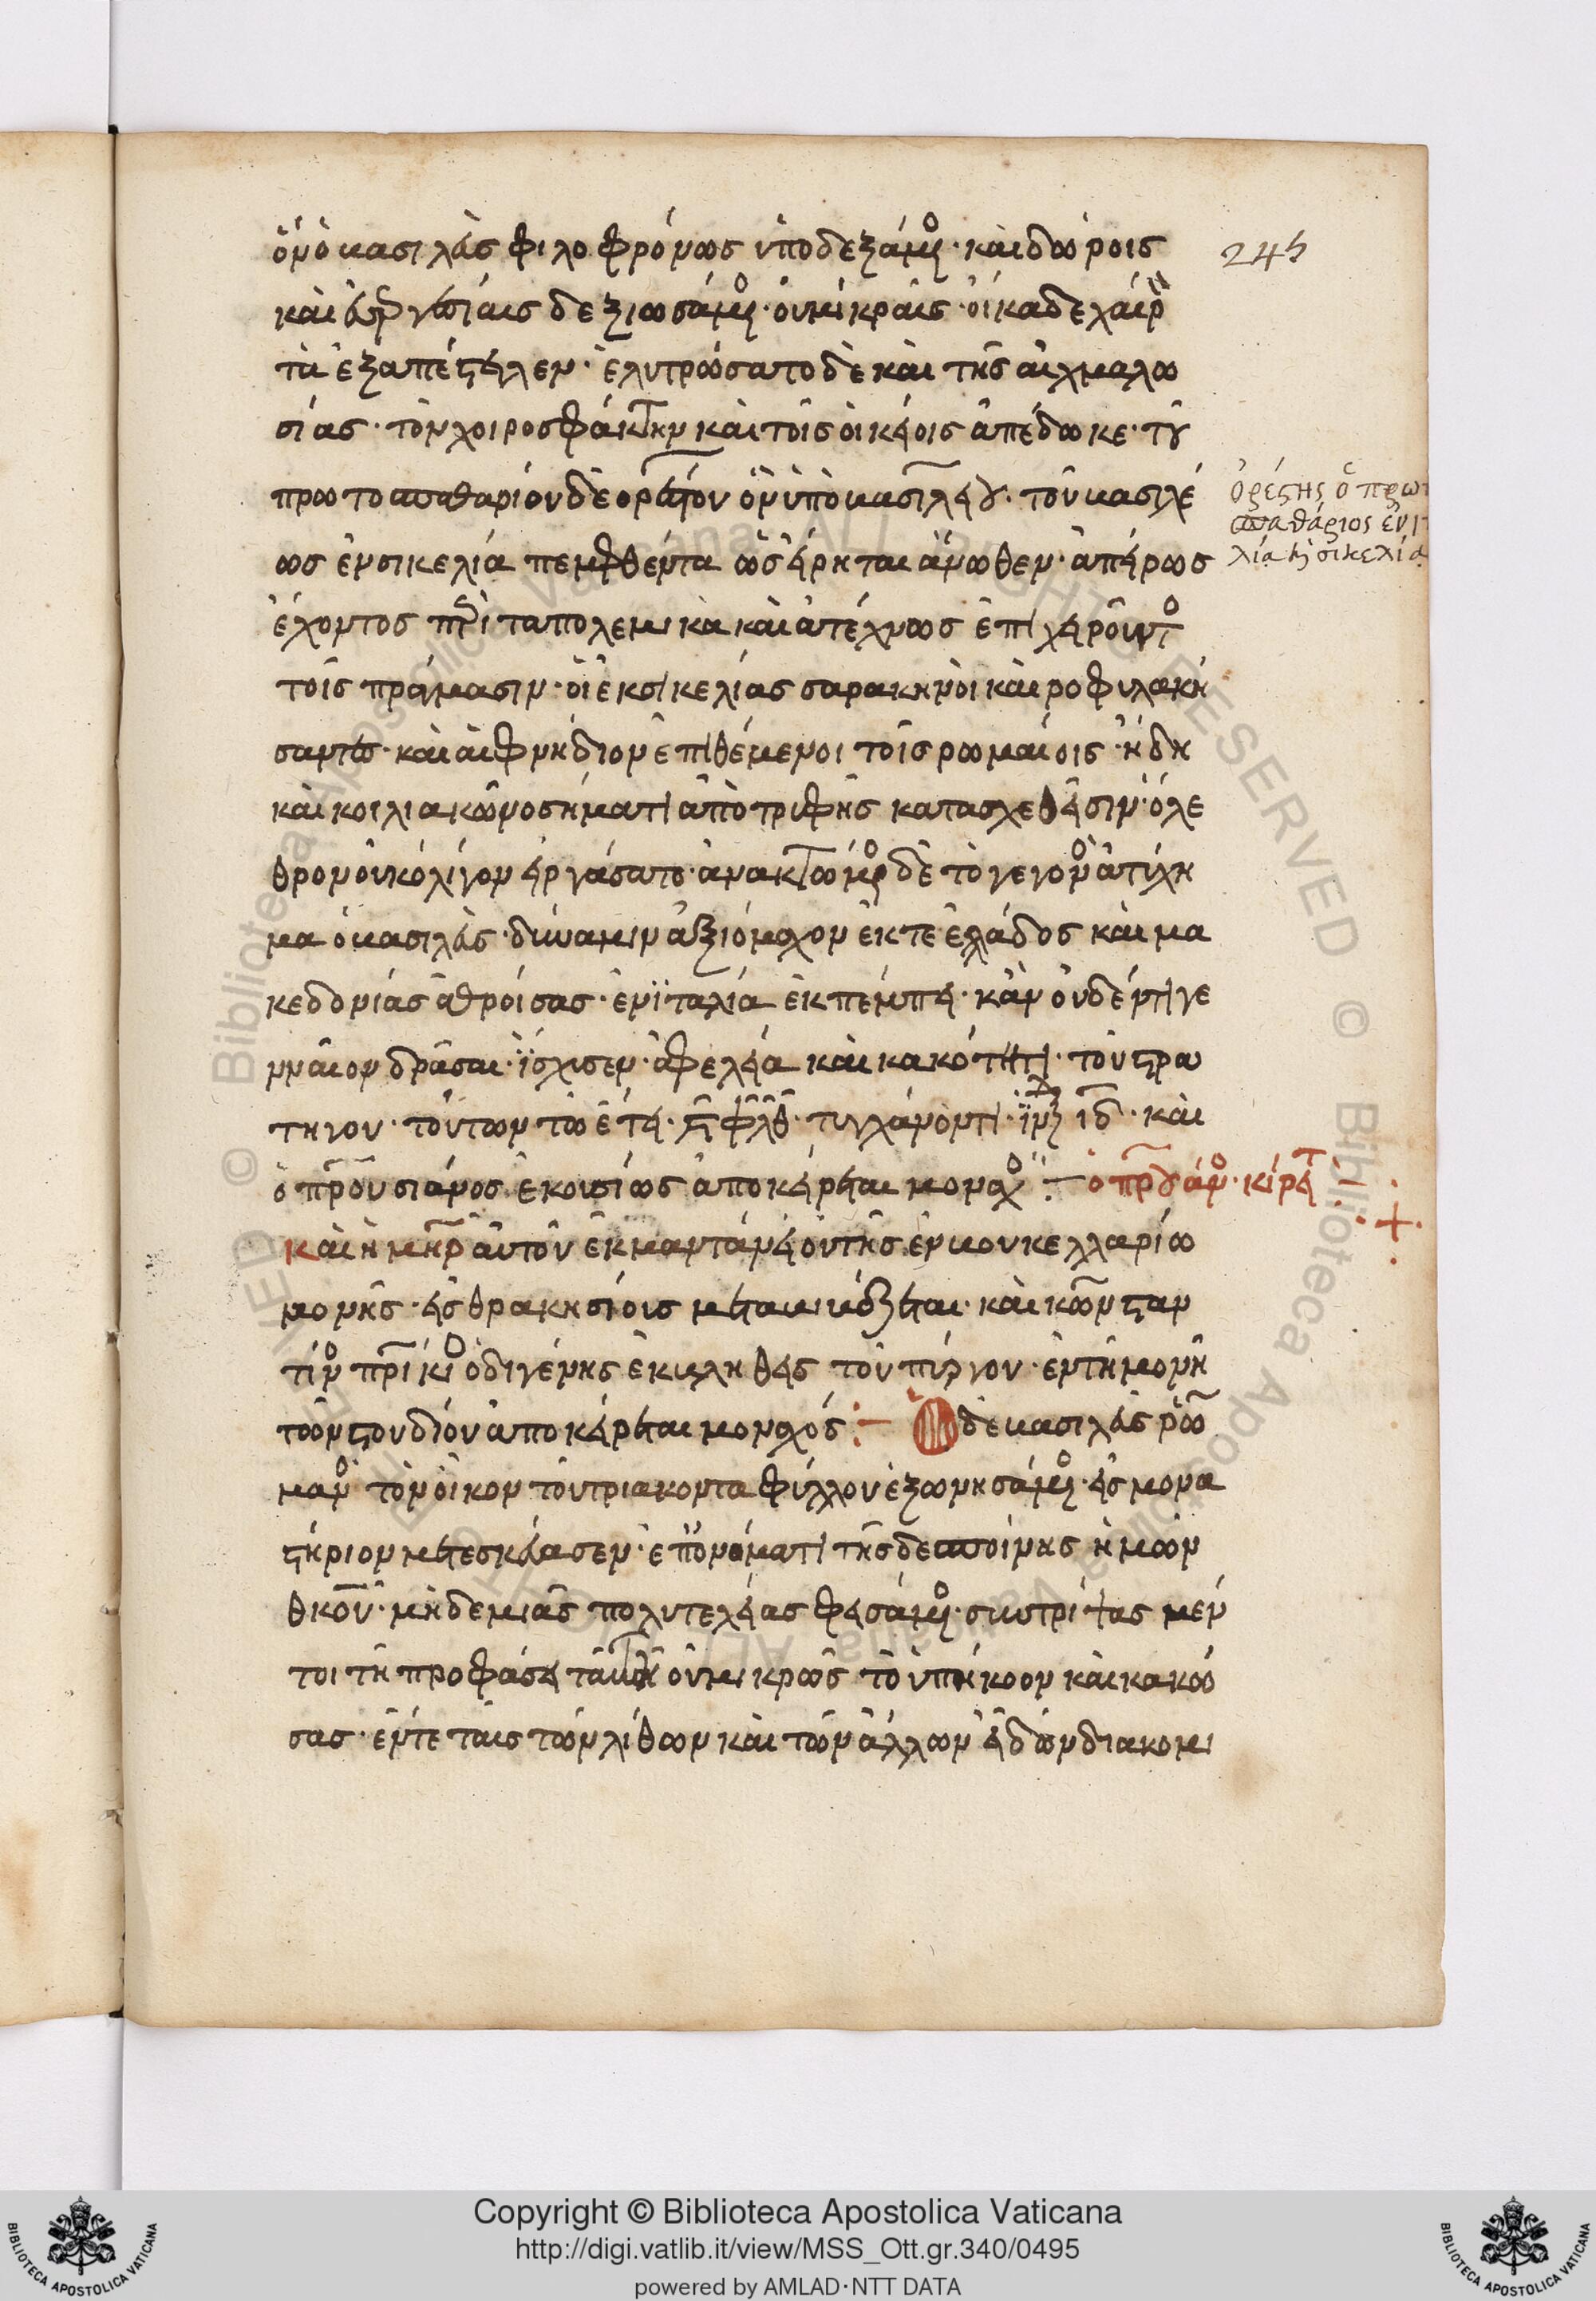 ὃν ὁ βασιλεὺς φιλοφρόνως ὑποδεξάμενος· καὶ δώροις
καὶ εὐεργεσίαις δεξιωσάμενος· οὐ μικραῖς· οἴκαδε χαίρον
τα ἐξαπέστειλεν· ἐλυτρώσατο δὲ καὶ τῆς αἰχμαλω
σίας· τὸν χοιροσφάκτην καὶ τοῖς οἰκείοις ἀπέδωκε· τοῦ
πρωτοσπαθαρίου δὲ ὀρέστου ὃν ὑπὸ βασιλείου· τοῦ βασιλέ
ως ἐν σικελία πεμφθέντα ὡς εἴρηται ἄνωθεν· ἀπείρως
ἔχοντος περὶ τὰ πολεμικὰ καὶ ἀτέχνως ἐπιχειροῦντος
τοῖς πράγμασιν· οἱ ἐκ σικελίας σαρακηνοὶ καιροφυλακή
σαντες· καὶ αἰφνηδιον ἐπιθέμενοι τοῖς ρωμαίοις· ἤδη
καὶ κοιλιακῶ νοσήματι ἀπὸ τρυφῆς κατασχεθεῖσιν· ὄλε
θρον οὐκ ὀλίγον εἰργάσατο· ἀνακτώμενος δὲ τὸ γεγονὸς ἀτύχη
μα ὁ βασιλεὺς· δύναμιν ἀξιόμαχον ἔκ τε ἑλλάδος καὶ μα
κεδονίας ἀθροίσας· ἐν ἰταλία ἐκπέμπει· κἂν οὐδέν τι γε
νναῖον δρᾶσαι· ἴσχυσεν· ἀφελεία καὶ κακότητι· τοῦ στρα
τηγου· τούτων τῶ ἔτει· ϛφλθ· τυγχάνοντι· ἰνδ ιδ· καὶ
ὁ προυσιάνος ἑκουσίως ἀποκείρεται μοναχός :– ὁ προυσιάνος· κείρεται
καὶ ἡ μήτηρ αὐτοῦ ἐκ μαντάνειου τῆς ἐν βουκελλαρίω
μονῆς· εἰς θρακησίοις μεταβιβάζεται· καὶ κωνσταν
τῖνος πατρίκιος ὁ διγένης ἐκβληθεὶς τοῦ πύργου· ἐν τῆ μονῆ
τῶν στουδίου ἀποκείρεται μοναχός :– Ὁ δὲ βασιλεὺς ρω
μανὸς τὸν οἶκον τοῦ τριακονταφύλλου ἐξωνησάμενος· εἰς μονα
στήριον μετεσκεύασεν· ἐπ' ὀνόματι τῆς δεσποίνης ἡμῶν
θκου· μηδεμιᾶς πολυτελείας φεισάμενος· συντρίψας μέν
τοι τῆ προφάσει ταύτη οὐ μικρῶς τὸ ὑπήκοον καὶ κακώ
σας· ἔν τε ταῖς τῶν λίθων καὶ τῶν ἄλλων εἰδῶν διακομι
245
ὀρέστης ὁ πρωτ
σπαθάριος ἐν ἰτ
λία κ σικελία